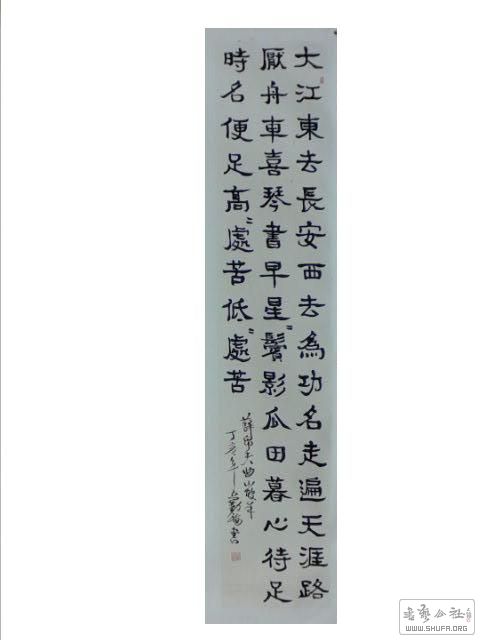 大江東去長安西去為功名走遍天涯路
厭舟車喜琴書早星〃鬢影瓜田暮心待足
時名便足高〃處苦低〃處苦
薛昂夫曲山坡羊
丁亥年書
书艺公社
WWW.SHUFA.ORG